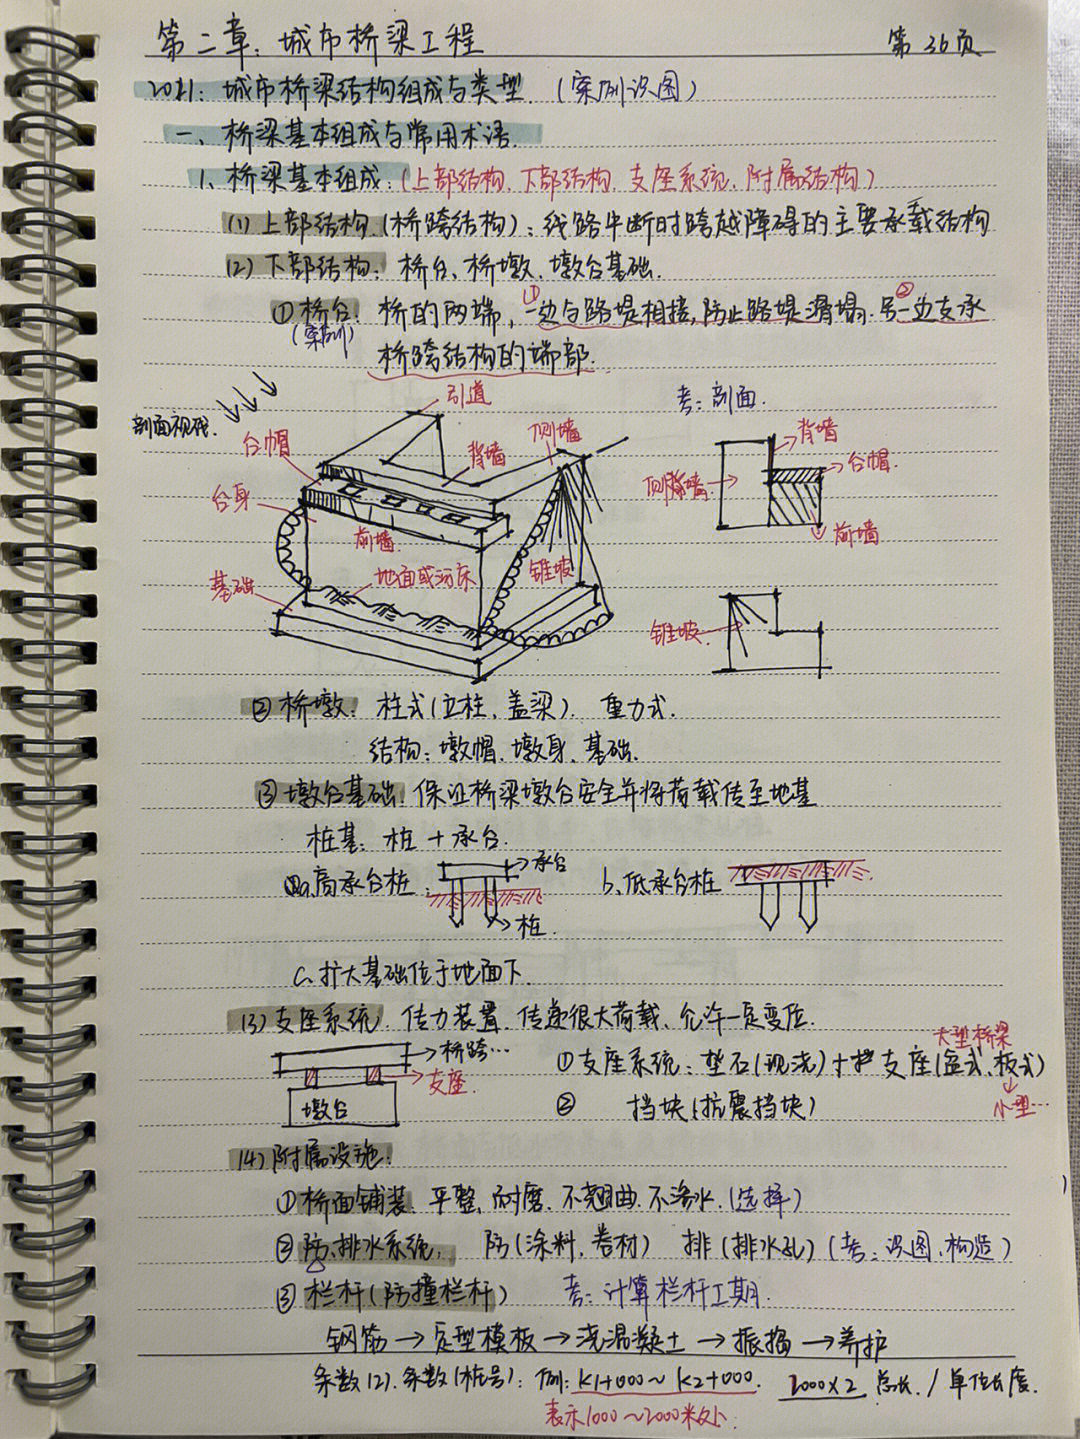 第二章：城市桥梁工程
第36页
2021：城市桥梁结构组成与类型 (案例识图)
一、桥梁基本组成与常用术语.
1、桥梁基本组成：(上部结构、下部结构、支座系统、附属结构)
(1)上部结构(桥跨结构)：线路中断时跨越障碍的主要承载结构
(2)下部结构：桥台、桥墩、墩台基础.
①桥台：桥的两端,①一边与路堤相接,防止路堤滑塌.②另一边支承
(案例)
桥跨结构的端部.
引道
考：剖面.
剖面视线.
台帽
背墙
侧墙
背墙
台帽.
台身
侧墙
前墙
前墙
地面或河床
锥坡
基础
锥坡
②桥墩：柱式(立柱、盖梁). 重力式.
结构：墩帽、墩身、基础.
③墩台基础：保证桥梁墩台安全并将荷载传至地基
桩基：桩＋承台.
a.高承台桩：
→承台
桩.
b、低承台桩
c、扩大基础位于地面下.
(3)支座系统. 传力装置. 传递很大荷载、允许一定变位.
大型桥梁
→桥跨…
→支座.
墩台
①支座系统：垫石(现浇)＋支座(盆式、板式)
小型…
② 挡块(抗震挡块)
(4)附属设施：
①桥面铺装. 平整、耐磨、不翘曲、不渗水.(选择)
②防、排水系统. 防(涂料、卷材) 排(排水孔)(考：识图、构造)
③栏杆(防撞栏杆) 考：计算栏杆工期.
钢筋→定型模板→浇混凝土→振捣→养护
条数(2). 条数(桩号)：例：K1+000～K2+000. 1000×2 总长./单位长度.
表示1000～2000米处.